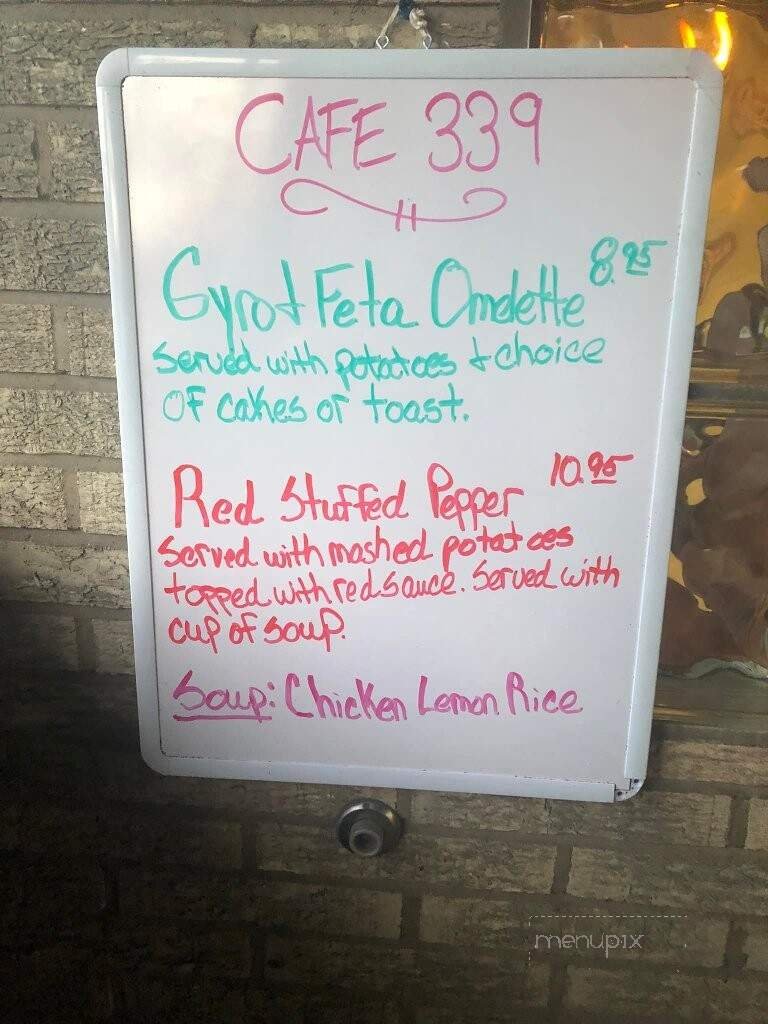 CAFE 339
Gyro + Feta Omelette 8.95
Served with potatoes + choice
of cakes or toast.
Red Stuffed Pepper 10.95
Served with mashed potatoes
topped with red sauce. Served with
cup of soup.
Soup: Chicken Lemon Rice
menupix